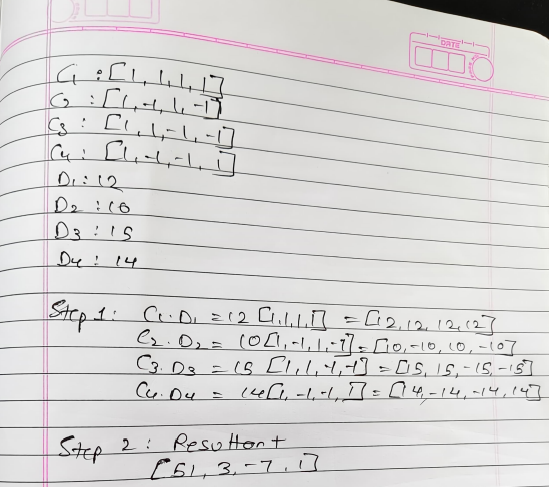 DATE
C1 : [1, 1, 1, 1]
C2 : [1, -1, 1, -1]
C3 : [1, 1, -1, -1]
C4 : [1, -1, -1, 1]
D1 : 12
D2 : 10
D3 : 15
D4 : 14
Step 1 : C1·D1 = 12 [1,1,1,1] = [12, 12, 12, 12]
C2·D2 = 10[1,-1,1,-1] = [10, -10, 10, -10]
C3·D3 = 15 [1,1,-1,-1] = [15, 15, -15, -15]
C4·D4 = 14[1,-1,-1,1] = [14, -14, -14, 14]
Step 2 : Resultant
[51, 3, -7, 1]